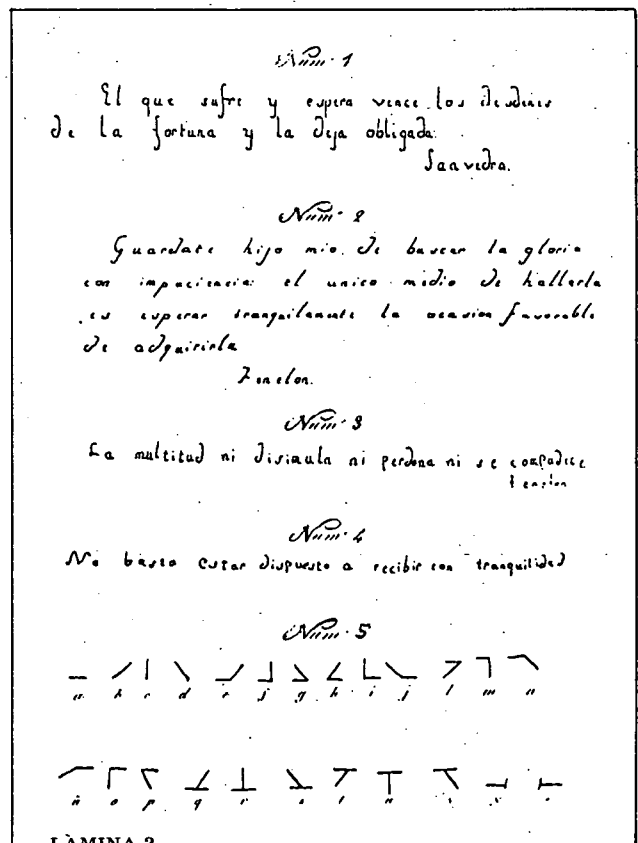 Num. 1
El que sufre y espera vence los desdenes
de la fortuna y la deja obligada.
Saavedra.
Num. 2
Guardate hijo mio de buscar la gloria
con impaciencia: el unico medio de hallarla
es esperar tranquilamente la ocasion favorable
de adquirirla
Fenelon.
Num. 3
La multitud ni disimula ni perdona ni se compadece
Fenelon
Num. 4
No basta estar dispuesto a recibir con tranquilidad
Num. 5
a b c d e f g h i j l m n
ñ o p q r s t u v
LÀMINA 2